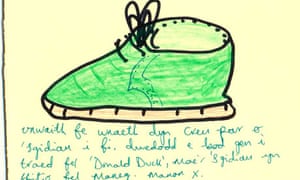 unwaith fe wnaeth dyn creu par o
'Sgidiau i fi. dwedodd e bod gen i
traed fel 'Donald Duck', Mae'r 'Sgidiau yn
ffitio fel Maneg. Manon x.